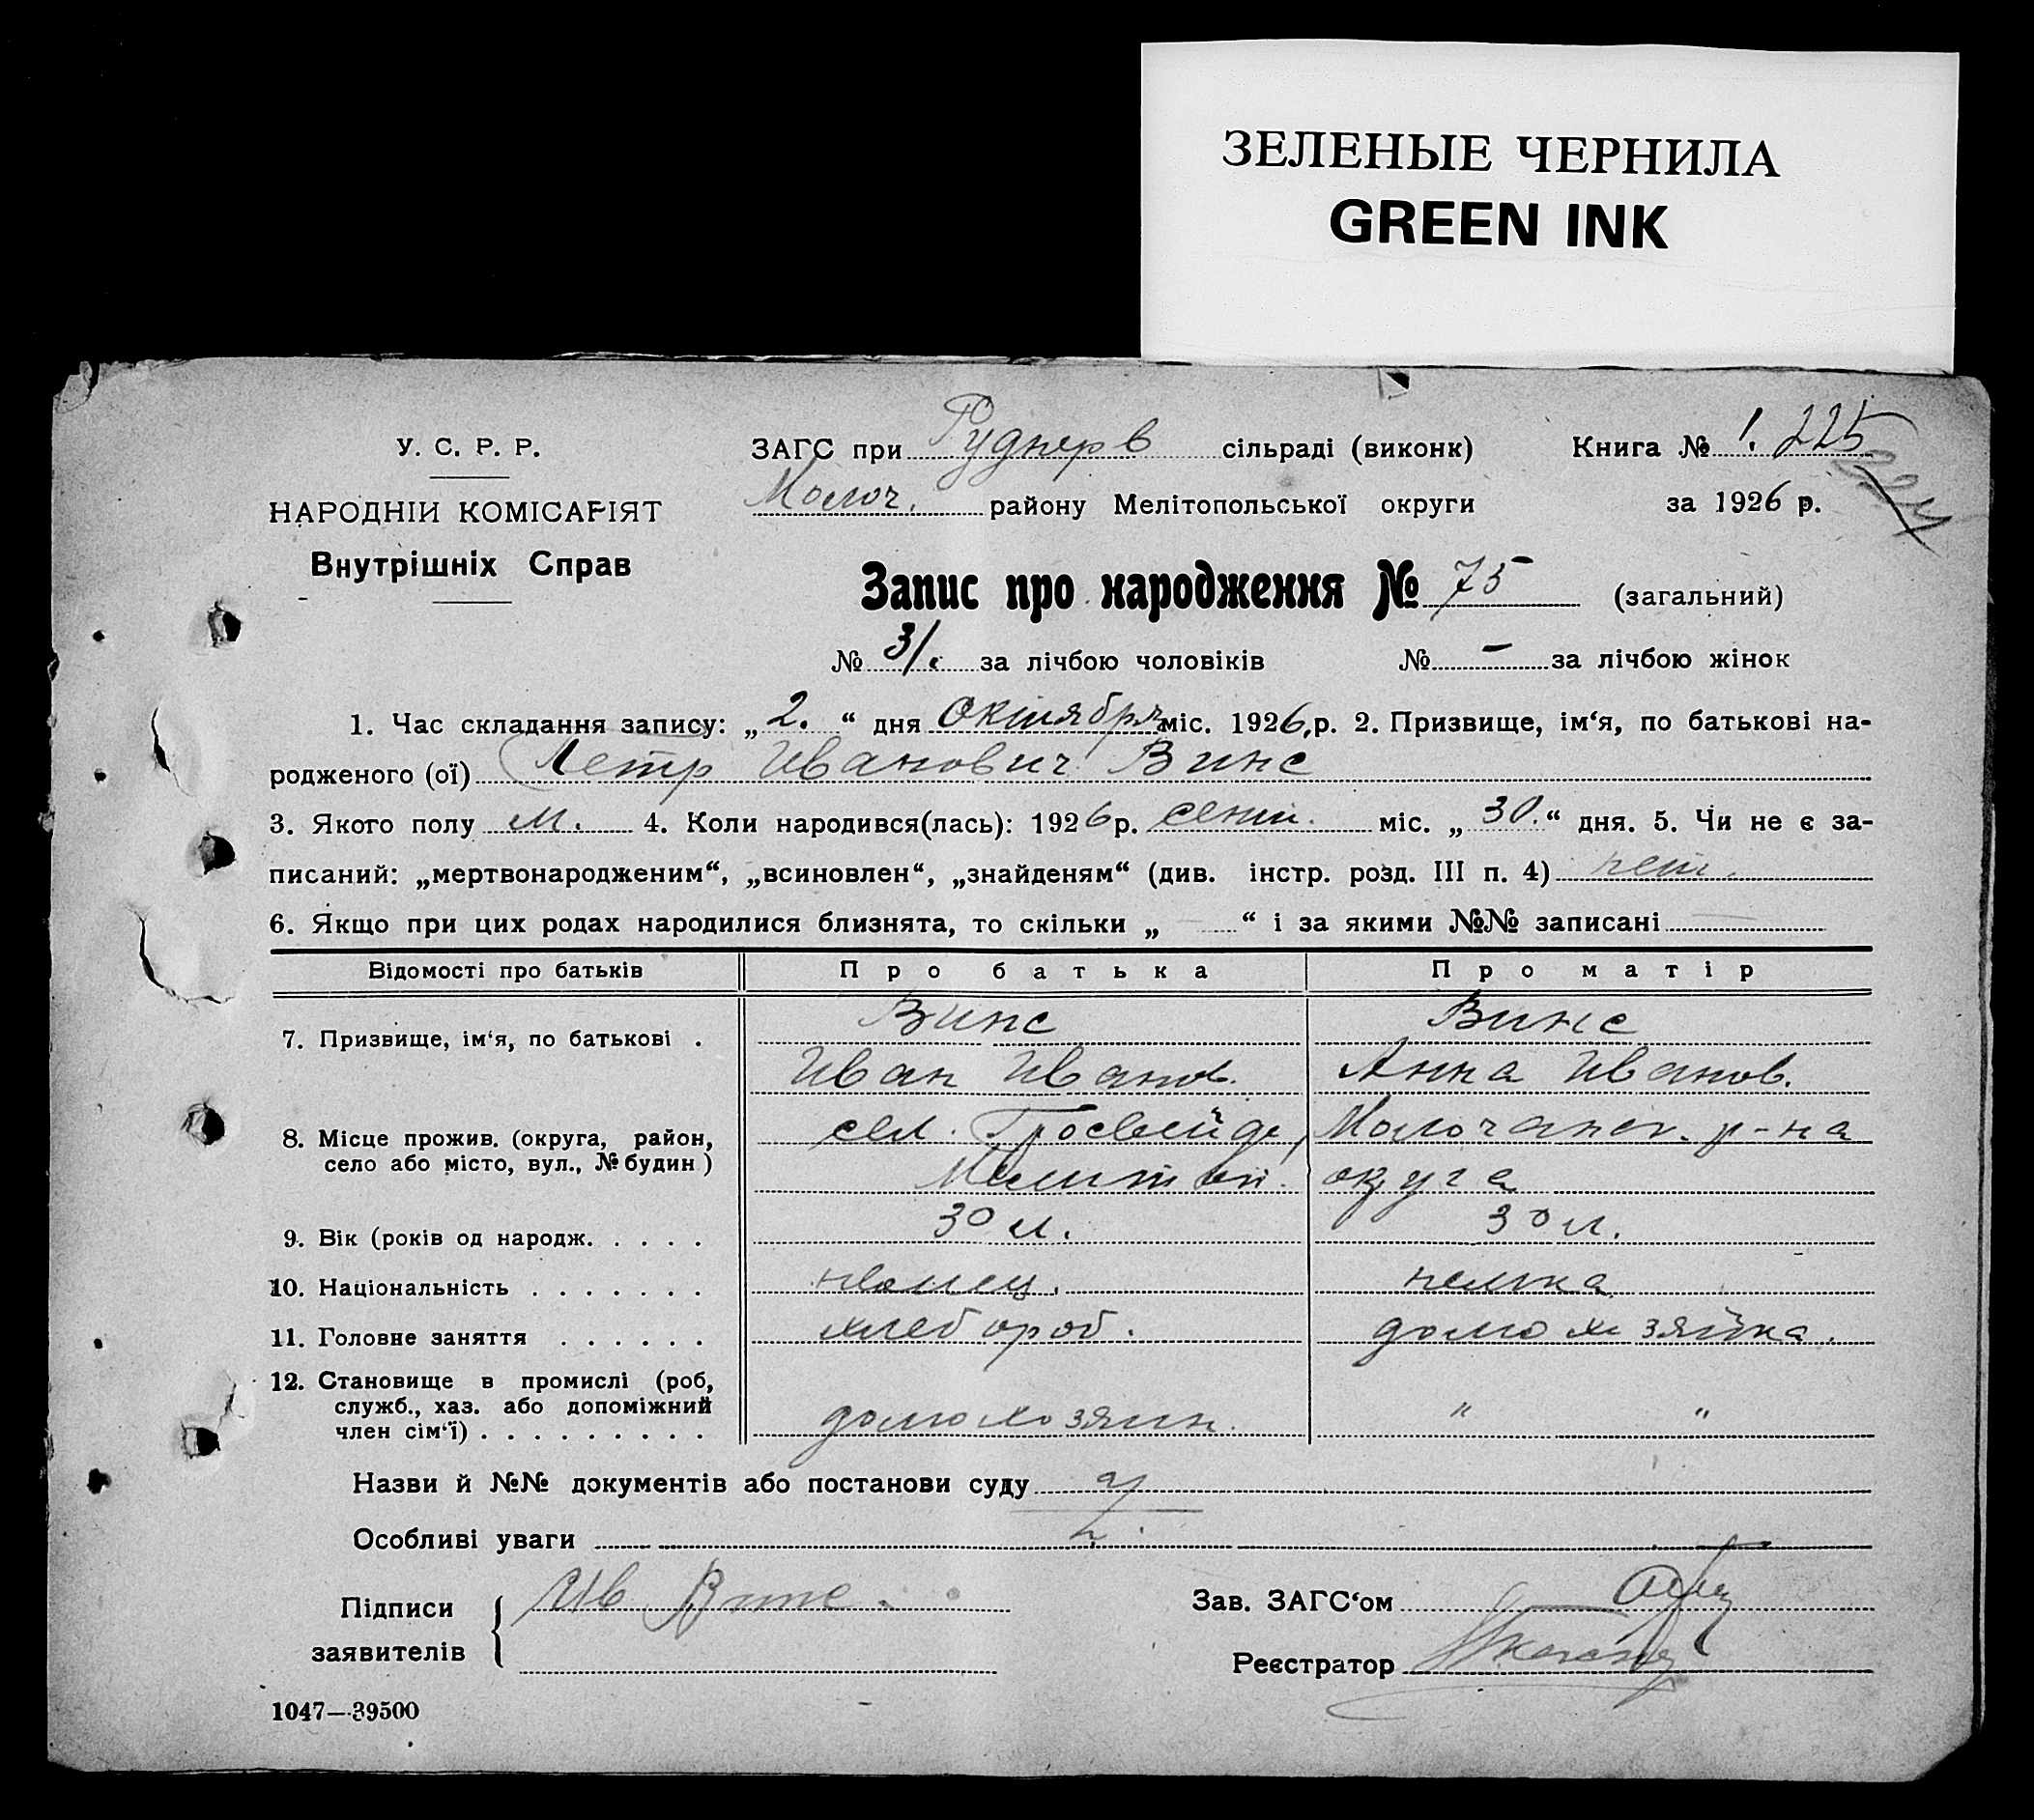 ЗЕЛЕНЫЕ ЧЕРНИЛА
GREEN INK
У. С. Р. Р.
НАРОДНІЙ КОМІСАРІЯТ
Внутрішніх Справ
ЗАГС при Руднерв сільраді (виконк)
Молоч. району Мелітопольської округи
Книга № 1. 225
за 1926 р.
Запис про народження № 75 (загальний)
№ 31. за лічбою чоловіків № - за лічбою жінок
1. Час складання запису: „2.“ дня октября міс. 1926, р. 2. Призвище, ім‘я, по батькові на-
родженого (ої) Петр Иванович Винс
3. Якого полу м. 4. Коли народився(лась): 1926 р. сент. міс. „30.“ дня. 5. Чи не є за-
писаний: „мертвонародженим“, „всиновлен“, „знайденям“ (див. інстр. розд. III п. 4) нет.
6. Якщо при цих родах народилися близнята, то скільки „ “ і за якими №№ записані
Відомості про батьків Про батька Про матір
7. Призвище, ім‘я, по батькові . Винс Винс
Иван Иванов. Анна Иванов.
8. Місце прожив. (округа, район, сел. Гросвейде, Молочанск. р-на
село або місто, вул., № будин) Мелитоп. округа
9. Вік (років од народж. . . . . 30 л. 30 л.
10. Національність . . . . . . . немец. немка
11. Головне заняття . . . . . . хлебороб. домохозяйка.
12. Становище в промислі (роб,
служб., хаз. або допоміжний
член сім‘ї) . . . . . . . . . домохозяин. " "
Назви й №№ документів або постанови суду
Особливі уваги
Підписи
заявителів
Ив Винс.
Зав. ЗАГС‘ом
Реєстратор
1047—39500